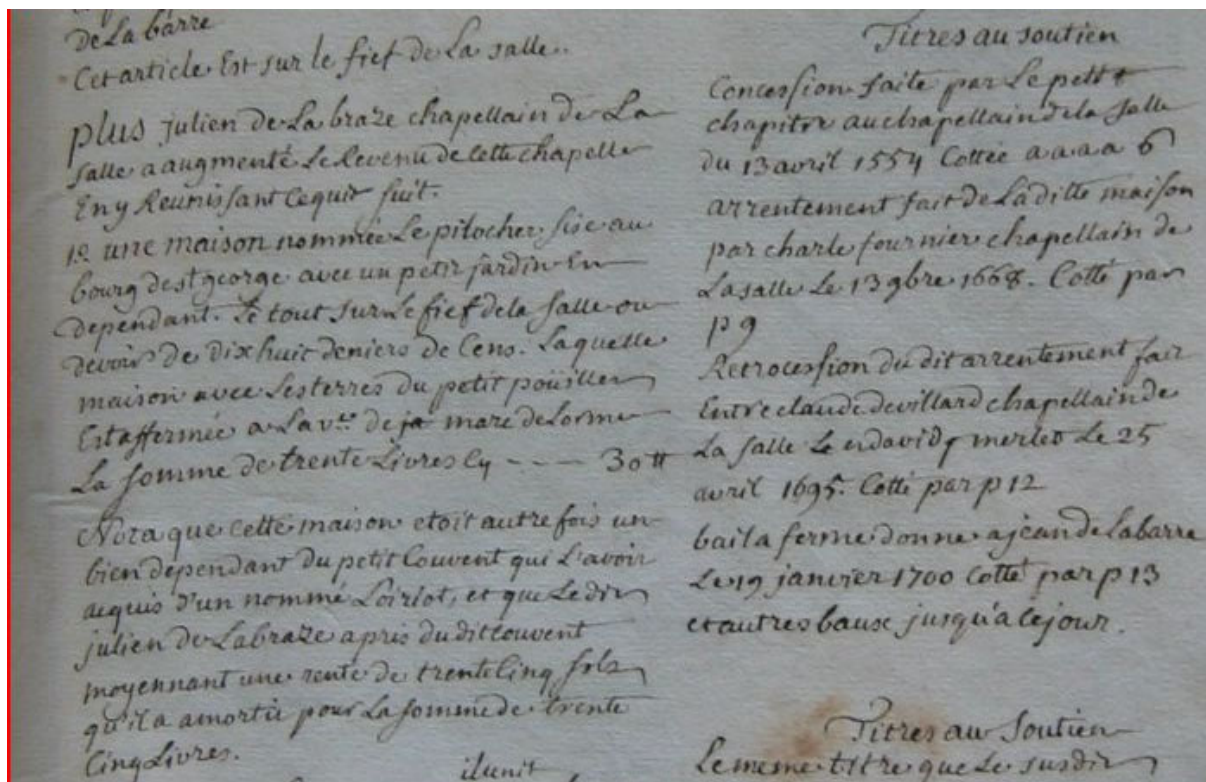 de La barre
Cet article Est sur le fief de La salle.
plus julien de La braze chapellain de La
salle a augmenté Le Revenu de cette chapelle
En y Reunissant ce quit suit.
1º une maison nommée Le pitocher sise au
bourg de st george avec un petit jardin En
dependant. Le tout sur Le fief de la salle ou
devoir de dix huit deniers de Cens. Laquelle
maison avec Les terres du petit poüiller
Est affermée a La vve de ja mare de Lorme
La somme de trente Livres Cy ---- 30 tt
Nota que cette maison etoit autre fois un
bien dependant du petit Couvent qui L'avoit
acquis d'un nommé Loirlot, et que Le dit
julien de La braze a pris du dit couvent
moyennant une rente de trente Cinq sols
qu'il a amortie pour La somme de trente
Cinq Livres.
il unit
Titres au soutien
Concession faite par Le petit
chapitre au chapellain de la salle
du 13 avril 1554 Cottée a a a a 6
arrentement fait de La ditte maison
par charle fournier chapellain de
La salle Le 13 9bre 1668. Cotté par
p 9
Retrocession du dit arrentement fait
Entre claude de villard chapellain de
La salle Le merlet Le 25
avril 1695. Cotté par p 12
bail a ferme donne a jean de La barre
Le 19 janvier 1700 Cotté par p 13
et autres baux jusqu'a ce jour.
Titres au Soutien
Le meme titre que Le susdit